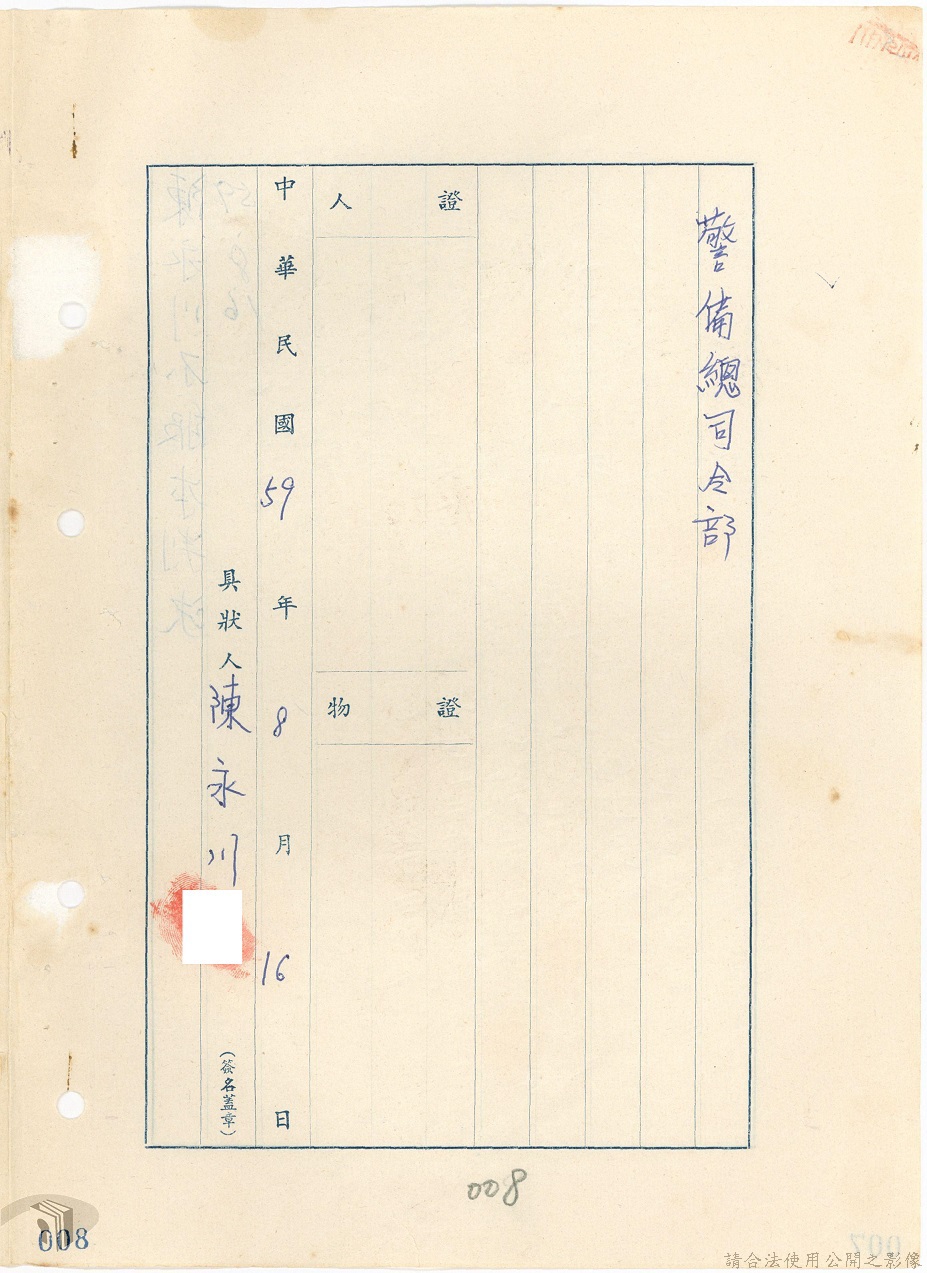 警備總司令部
證人
證物
中華民國59年8月16日
具狀人陳永川
(簽名蓋章)
008
008
請合法使用公開之影像